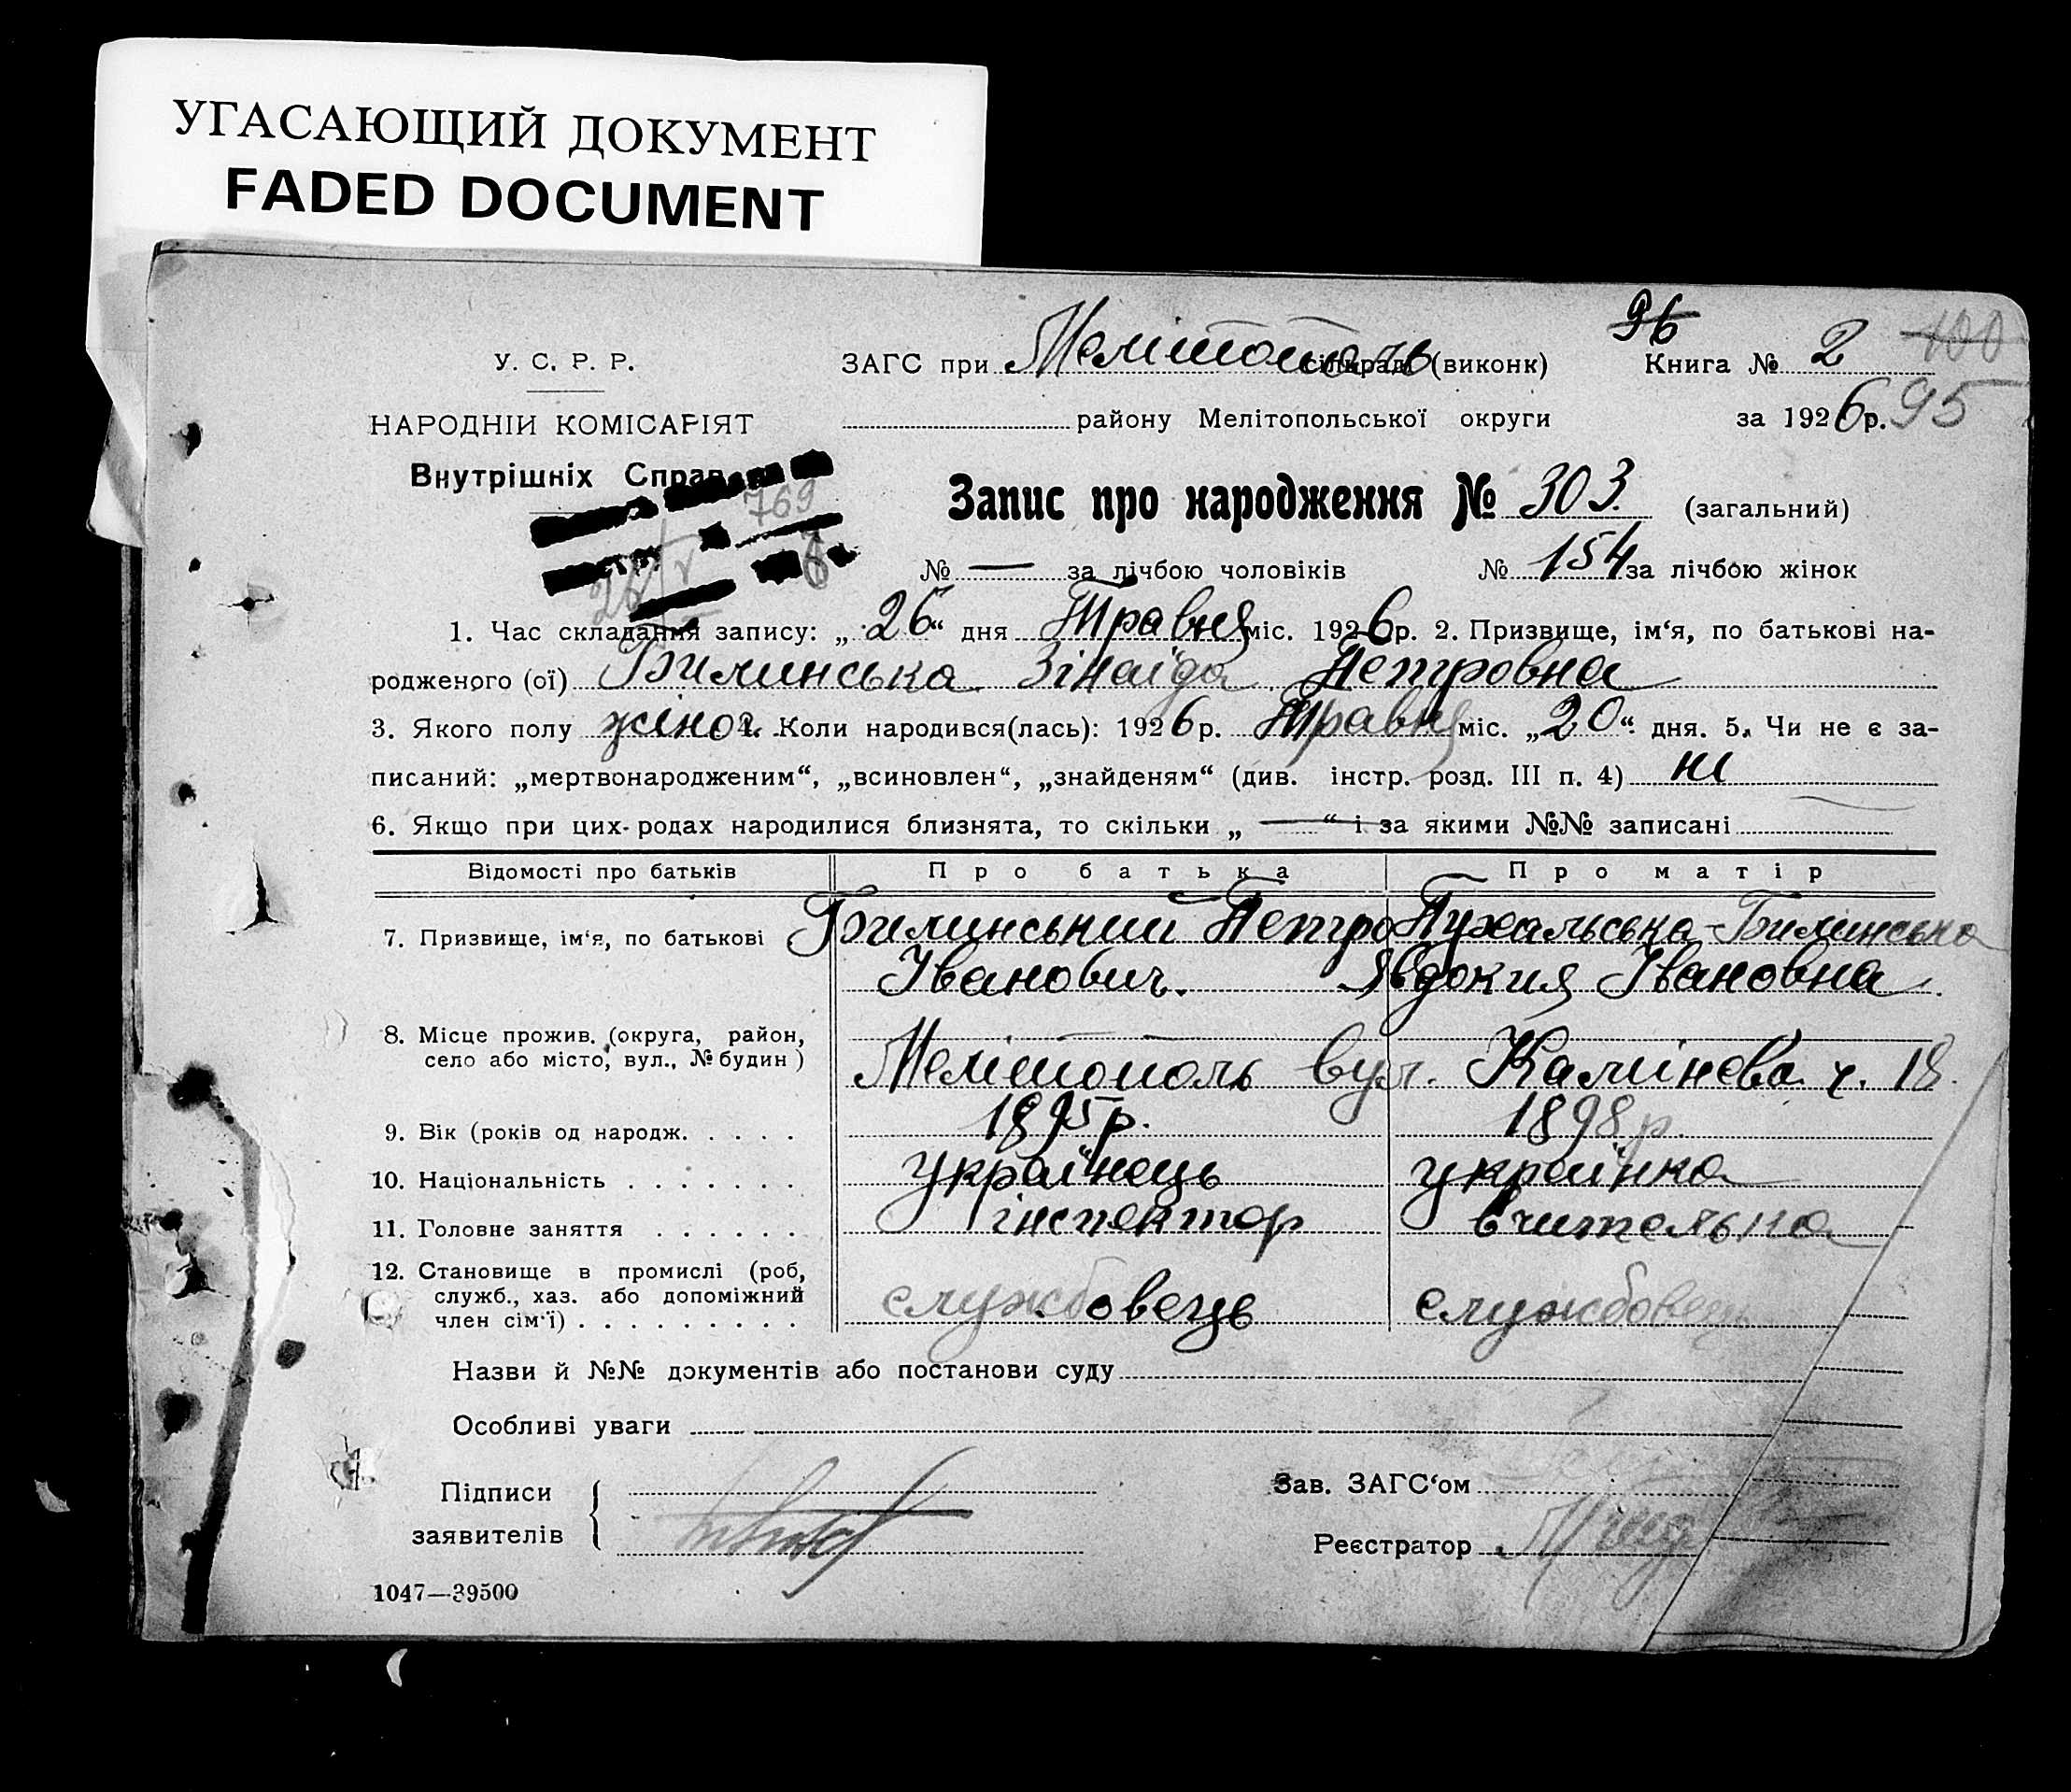 УГАСАЮЩИЙ ДОКУМЕНТ
FADED DOCUMENT
96
У. С. Р. Р.
ЗАГС при Мелітополь сільраді (виконк) Книга № 2 100
НАРОДНІЙ КОМІСАРІЯТ
району Мелітопольської округи за 1926 р. 95
Внутрішніх Справ
769
Запис про народження № 303. (загальний)
№ — за лічбою чоловіків № 154 за лічбою жінок
26/V 6
1. Час складання запису: „26“ дня Травня міс. 1926 р. 2. Призвище, ім‘я, по батькові на-
родженого (ої) Билинська Зінаїда Петровна
3. Якого полу жіноч. 4. Коли народився(лась): 1926 р. Травня міс. „20“ дня. 5. Чи не є за-
писаний: „мертвонародженим“, „всиновлен“, „знайденям“ (див. інстр. розд. III п. 4) ні
6. Якщо при цих-родах народилися близнята, то скільки „ — “ і за якими №№ записані
Відомості про батьків Про батька Про матір
7. Призвище, ім‘я, по батькові Билинський Петро Пухальська-Билинська
Іванович. Явдокия Івановна
8. Місце прожив. (округа, район,
село або місто, вул., № будин) Мелітополь вул. Калінєва ч. 18.
9. Вік (років од народж. . . . . 1895 р. 1898 р.
10. Національність . . . . . . . українець українка
11. Головне заняття . . . . . . інспектор вчителька
12. Становище в промислі (роб,
служб., хаз. або допоміжний
член сім‘ї) . . . . . . . . . службовець службовець
Назви й №№ документів або постанови суду
Особливі уваги
Підписи
заявителів
Зав. ЗАГС‘ом
Реєстратор
1047—39500